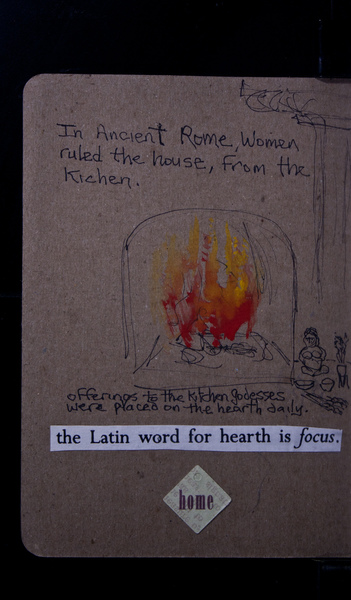 In Ancient Rome, Women
ruled the house, From the
Kichen.
offerings to the kitchen godesses
were placed on the hearth daily.
the Latin word for hearth is focus.
home